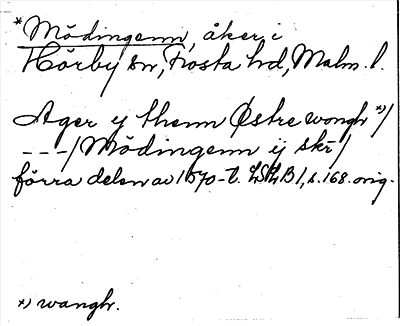 *Mödingenn, åker i
Hörby sn, Frosta hd, Malm. l.
Ager y thenn Østre wongh *)/
---/Mödingenn ij skr/
förra delen av 1570-t. LSkB1, s. 168. orig.
*) wangh.